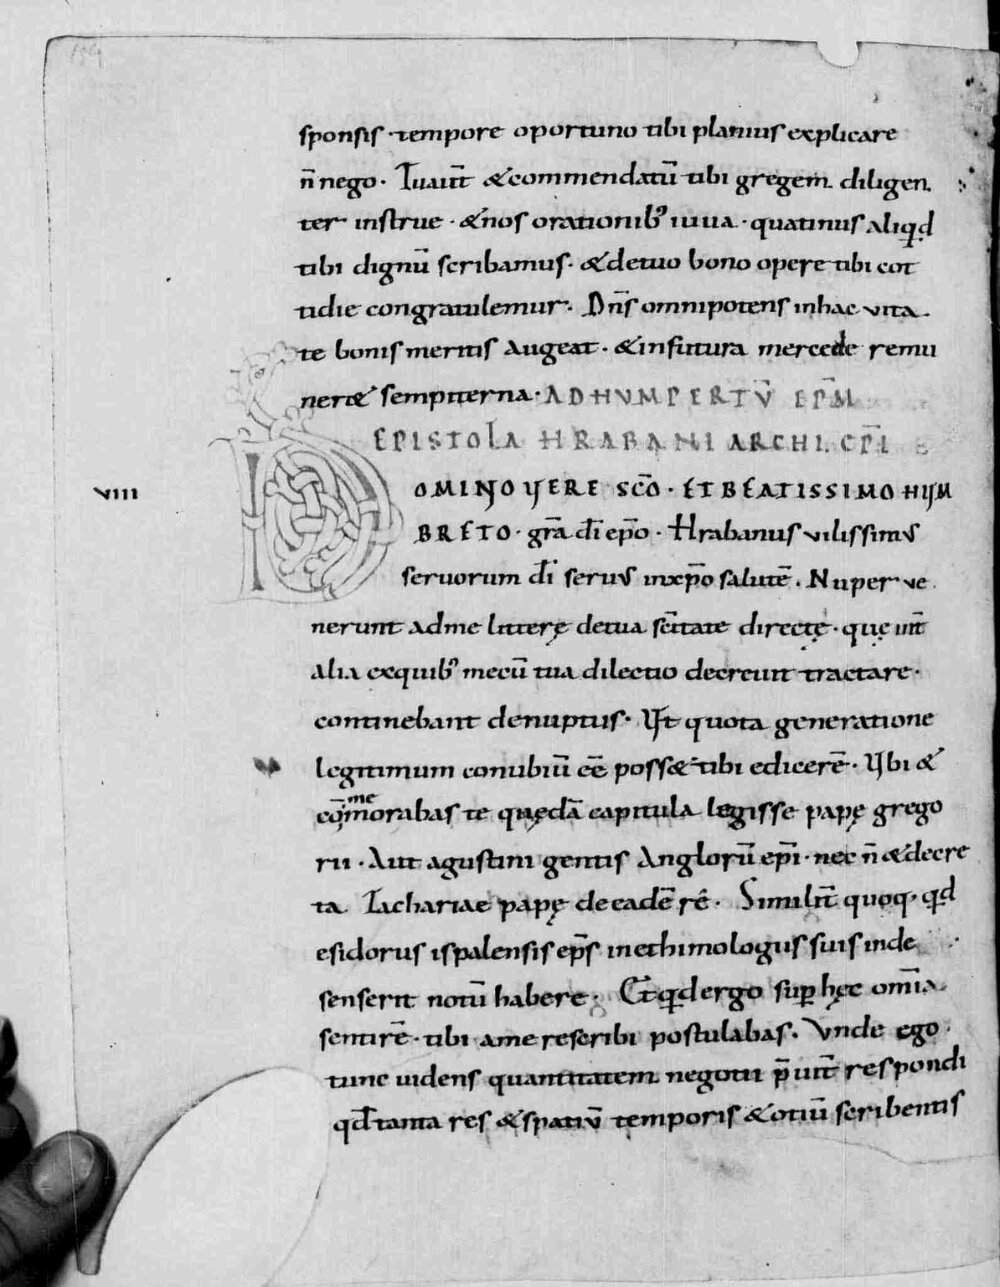 sponsis · tempore oportuno tibi planius explicare
n̄ nego · &commendatū tibi gregem diligen
ter instrue · &nos orationib' iuua · quatinus aliqđ
tibi dignū scribamus · &detuo bono opere tibi cot
tidie congratulemur · Dn̄s omnipotens inhac vita
te bonis meritis augeat · &infutura mercede remu
ner& sempiterna · AD HVMPERTV̄ EPM̄
EPISTOLA HRABANI ARCHI EPĪ
VIII
DOMINO VERE SC̄O · ET BEATISSIMO HUM
BRETO · grā dī ep̄o · Hrabanus vilissimus
seruorum dī seruus inxp̄o salutē · Nuper ve
nerunt adme litterę detua sc̄itate directę · quę int̄
alia exquib' mecū tua dilectio decreuit tractare ·
continebant denuptiis · Ut quota generatione
legitimum conubiū eē poss& tibi edicerē · Ubi &
cōmemorabas te quędā capitula legisse papę grego
rii · Ait agustini gentis Anglorū ep̄i · nec n̄ &decre
ta Zachariae papę de eadē rē · Similit̄ quoq · qđ
esidorus ispalensis ep̄s inethimologiis suis inde
senserit notū habere · Et qđ ergo sup hęc om̄ia
sentirē · tibi ame rescribi postulabas · Vnde ego
tunc uidens quantitatem negotii respondi
qđ tanta res &spatiū temporis &otiū scribentis